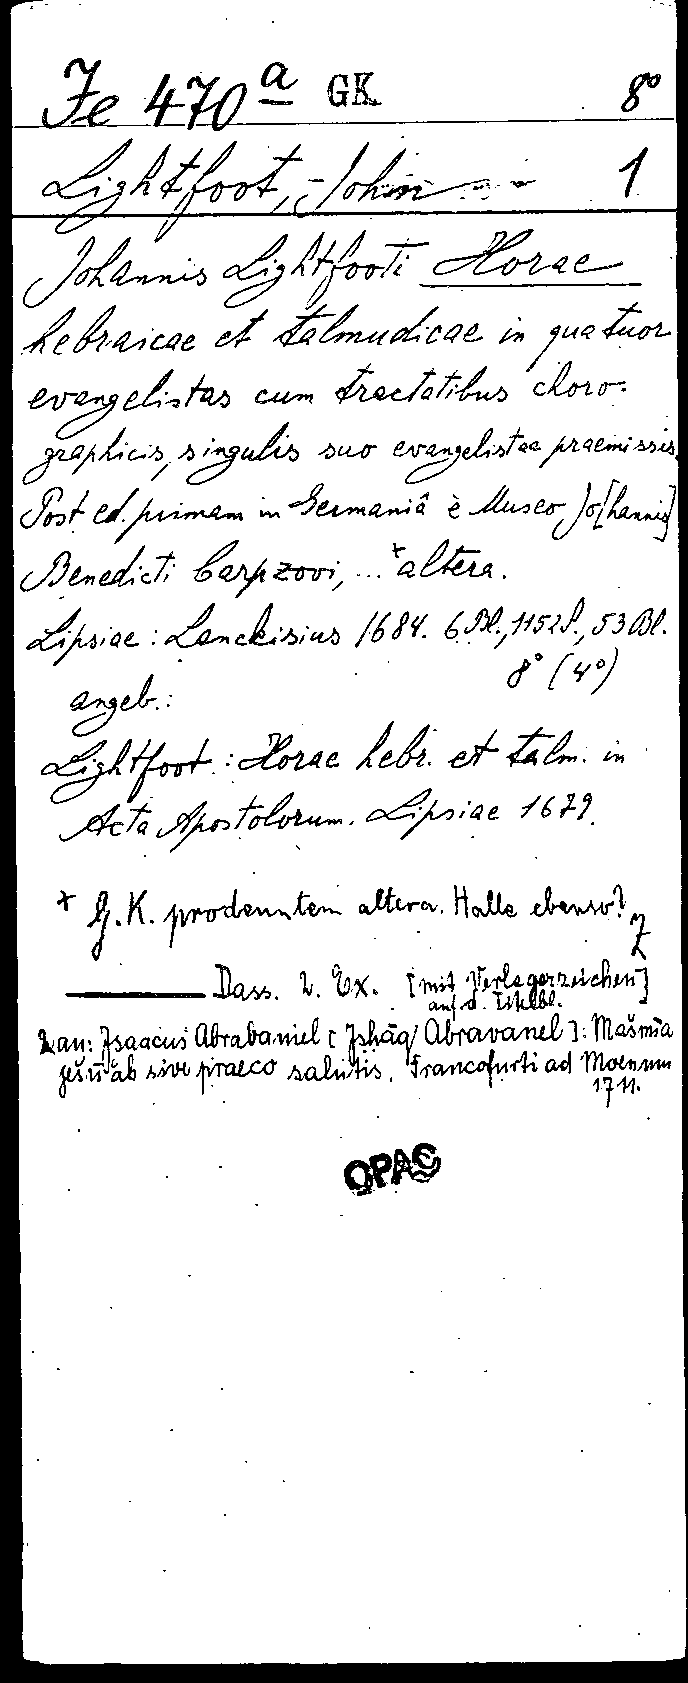 Je 470 a GK 8°
Lightfoot, John 1
Johannis Lightfooti Horae
hebraicae et talmudicae in quatuor
evangelistas cum tractatibus choro-
graphicis, singulis suo evangelistae praemissis.
Post ed. primam in Germaniâ è Museo Jo[hannis]
Benedicti Carpzovi, ... * altera.
Lipsiae : Lanckisius 1684. 6 Bl., 1152 S., 53 Bl.
8° (4°)
angeb.:
Lightfoot : Horae hebr. et talm. in
Acta Apostolorum. Lipsiae 1679.
* G.K. prodeuntem altera. Halle ebenso?
Z
——— Dass. 2. Ex. [mit Verlegerzeichen]
auf d. Titelbl.
2 an: Isaacus Abrabaniel [Jshāq Abravanel]: Mašmīaʿ
ješūʿāh sive praeco salutis. Francofurti ad Moenum
1711.
OPAC